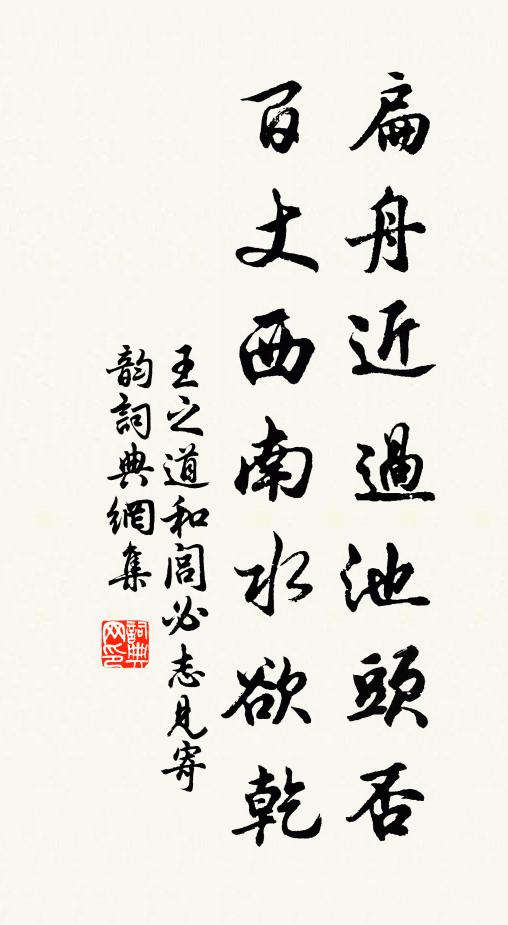 扁舟近過池頭否
百丈西南水欲乾
王之道和閻必志見寄
韵詞典網集
詞典
网印